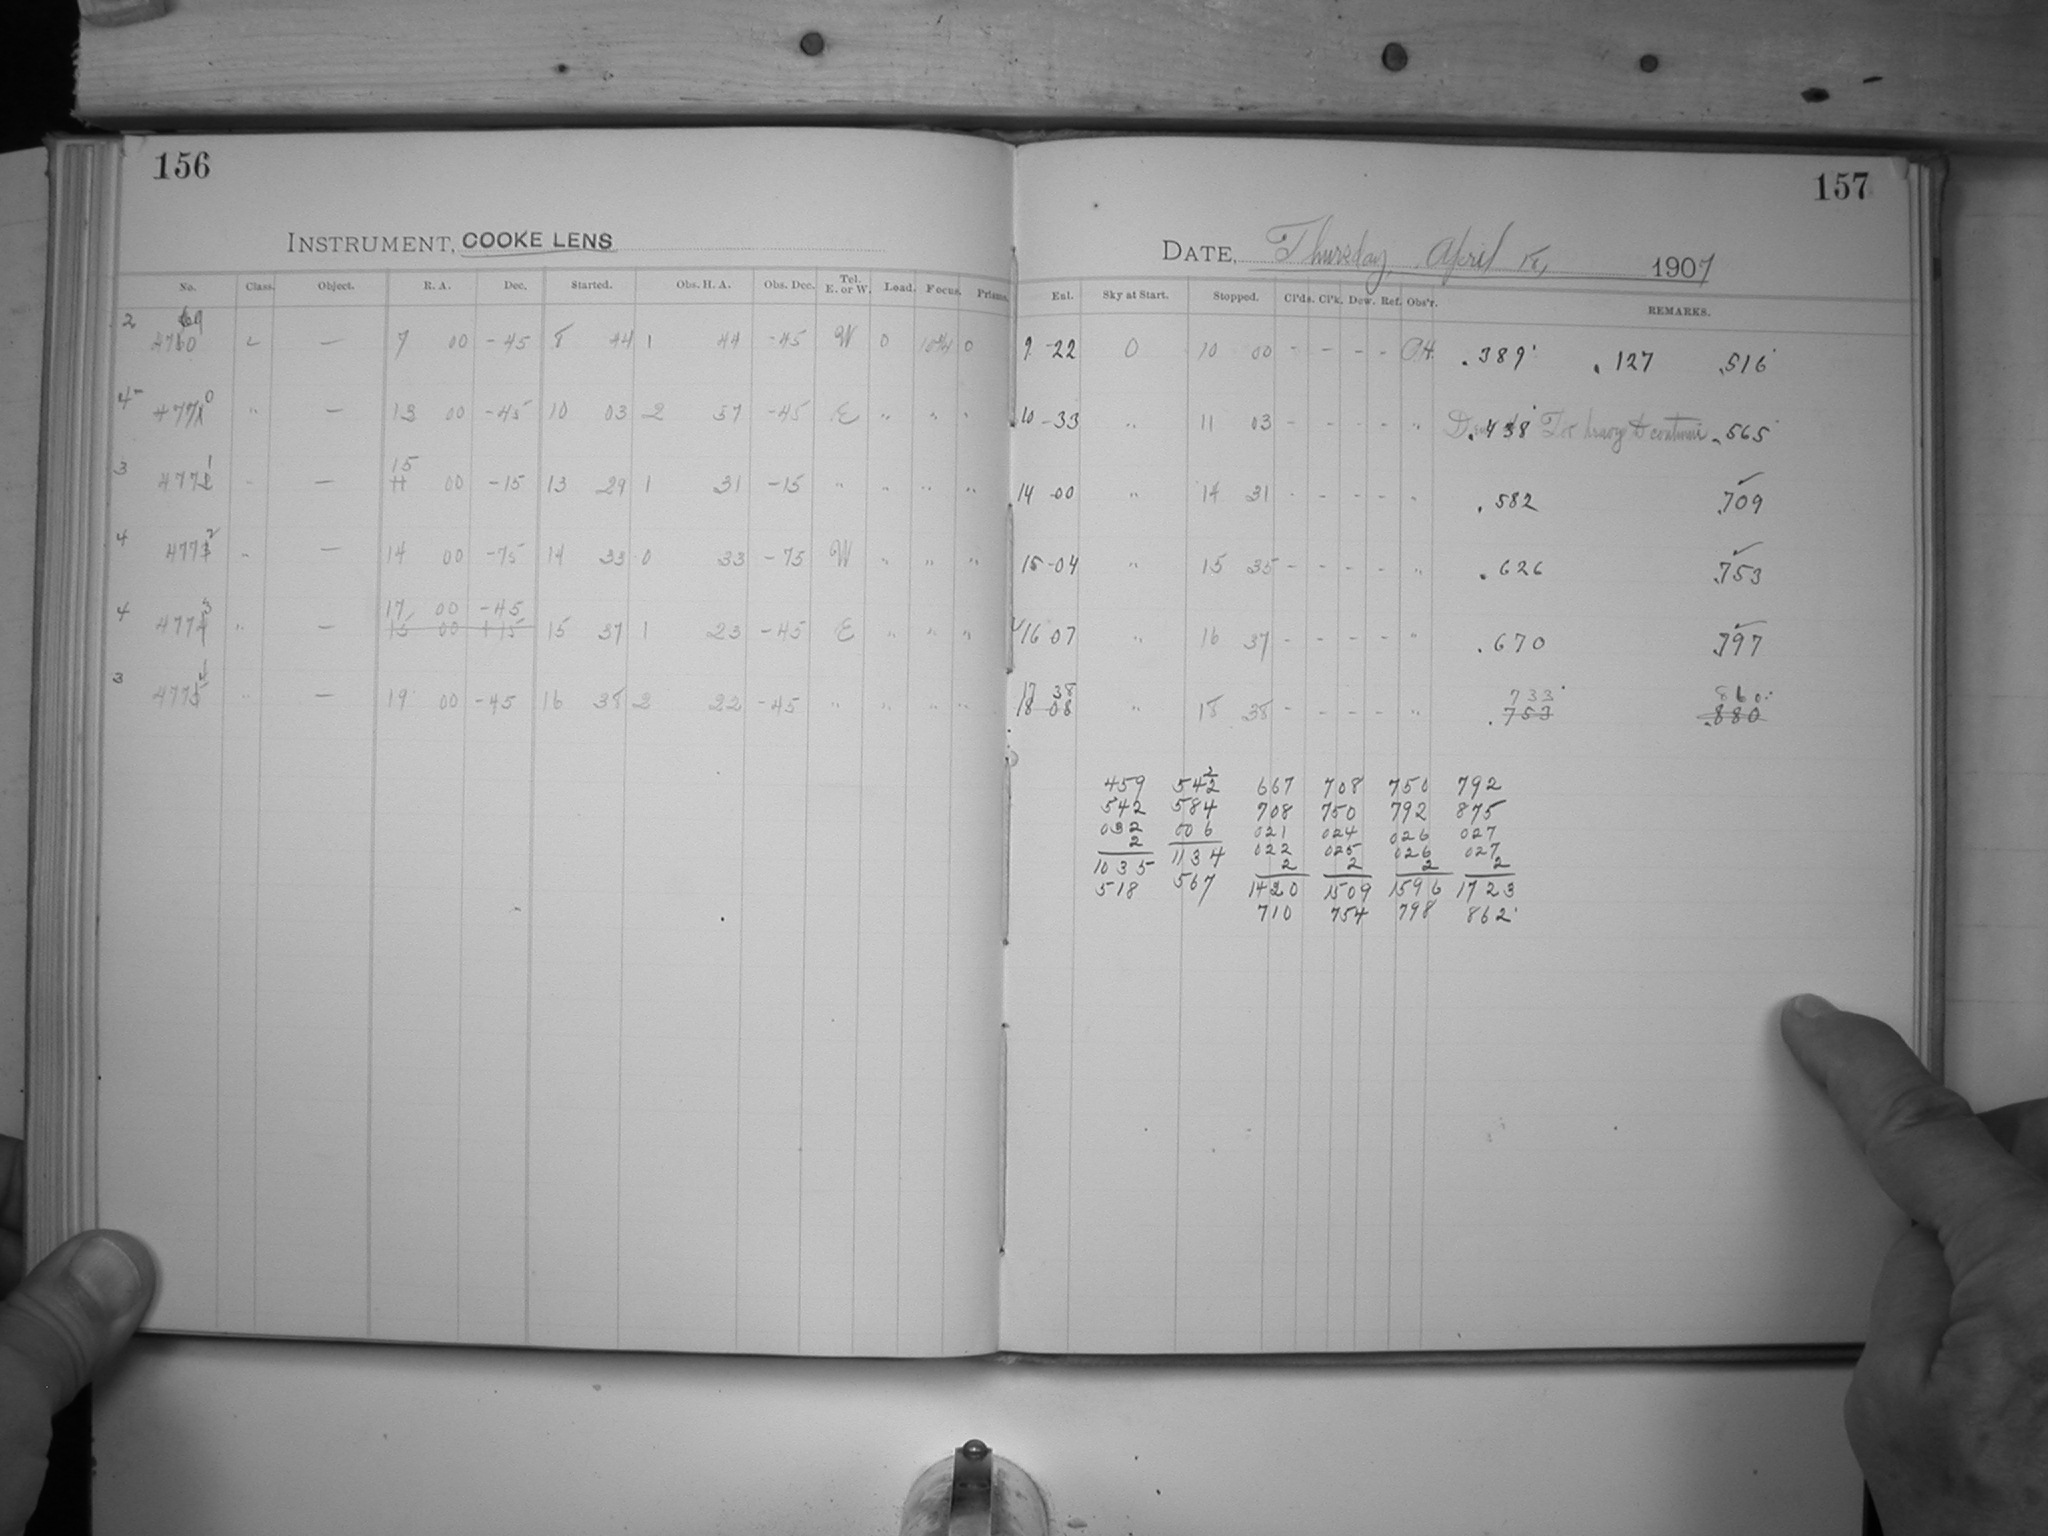 156
157
INSTRUMENT, COOKE LENS
DATE, Thursday, April 18, 1907
No. Class. Object. R. A. Dec. Started. Obs. H. A. Obs. Dec. Tel. E. or W. Load. Focus. Prisms. Eul. Sky at Start. Stopped. Cl'ds. Cl'k. Dew. Ref. Obs'r. REMARKS.
2 4760 69 L — 7 00 -45 8 44 1 44 -45 W 0 0 9 -22 0 10 00 - - - - .389 .127 .516
4 4771 0 " — 13 00 -45 10 03 2 57 -45 E " " " 10 -33 " 11 03 - - - - " .438 Too heavy to continue .565
3 4772 1 " — 15 11 00 -15 13 29 1 31 -15 " " " " 14 00 " 14 31 - - - - " .582 .709
4 4773 2 " — 14 00 -75 14 33 0 33 -75 W " " " 15 -04 " 15 35 - - - - " .626 .753
17 00 -45
4 4774 3 " — 15 00 +15 15 37 1 23 -45 E " " " 16 07 " 16 37 - - - - " .670 .797
17 38 733 860
3 4775 4 " — 19 00 -45 16 38 2 22 -45 " " " " 18 08 " 18 38 - - - - " .753 .880
459 542 2 667 708 750 792
542 584 708 750 792 875
032 006 021 024 026 027
2 022 025 026 027
1035 1134 2 2 2 2
518 567 1420 1509 1596 1723
710 754 798 862